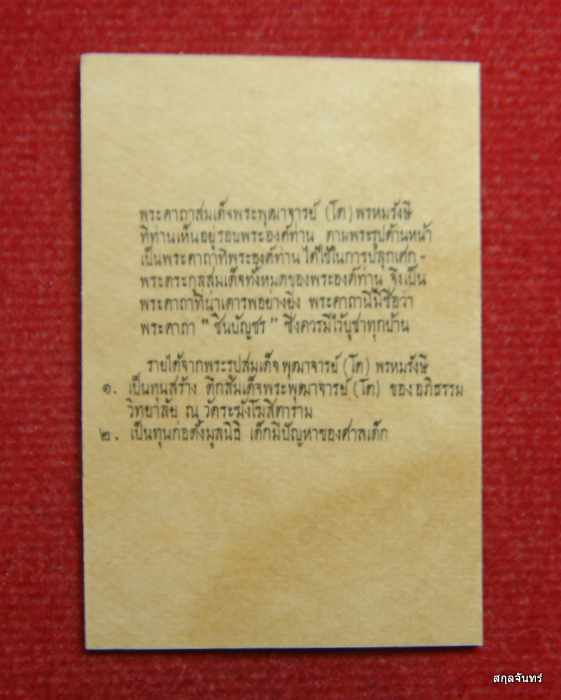 พระคาถาสมเด็จพระพุฒาจารย์ (โต) พรหมรังษี
ที่ท่านเห็นอยู่รอบพระองค์ท่าน ตามพระรูปด้านหน้า
เป็นพระคาถาที่พระองค์ท่าน ได้ใช้ในการปลุกเศก -
พระตระกูลสมเด็จทั้งหมดของพระองค์ท่าน จึงเป็น
พระคาถาที่น่าเคารพอย่างยิ่ง พระคาถานี้มีชื่อว่า
พระคาถา " ชินบัญชร " ซึ่งควรมีไว้บูชาทุกบ้าน
รายได้จากพระรูปสมเด็จพุฒาจารย์ (โต) พรหมรังษี
๑. เป็นทุนสร้าง ตึกสมเด็จพระพุฒาจารย์ (โต) ของอภิธรรม
วิทยาลัย ณ วัดระฆังโฆสิตาราม
๒. เป็นทุนก่อตั้งมูลนิธิ เด็กมีปัญหาของศาลเด็ก
สกุลจันทร์